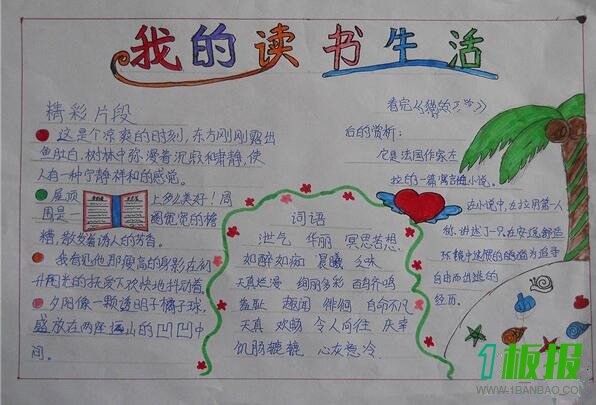 我的读书生活
精彩片段
这是个凉爽的时刻，东方刚刚露出
鱼肚白，树林中弥漫着沉寂和肃静，使
人有一种宁静祥和的感觉。
屋顶上多么美好！周
围是一圈宽宽的
糟，散发着诱人的芳香。
我看见他那瘦高的身影在初
升阳光的抚爱下欢快地抖动着
夕阳像一颗透明于橘子球，
盛放在两座远山的凹凹中
间。
词语
泄气 华丽 冥思苦想
如醉如痴 晨曦
天真烂漫 绚丽多彩 百鸟齐鸣
羞耻 趣闻 徘徊 自命不凡
天真 欢畅 令人向往 庆幸
饥肠辘辘 心灰意冷
看完《
后的赏析：
它是法国作家左
拉的一篇寓言小说。
在小说中，左拉用第一人
称，讲述了一只在安逸舒适
环境中的猫为追寻
自由而出逃的
经历。
1板报
WWW.1BANBAO.COM